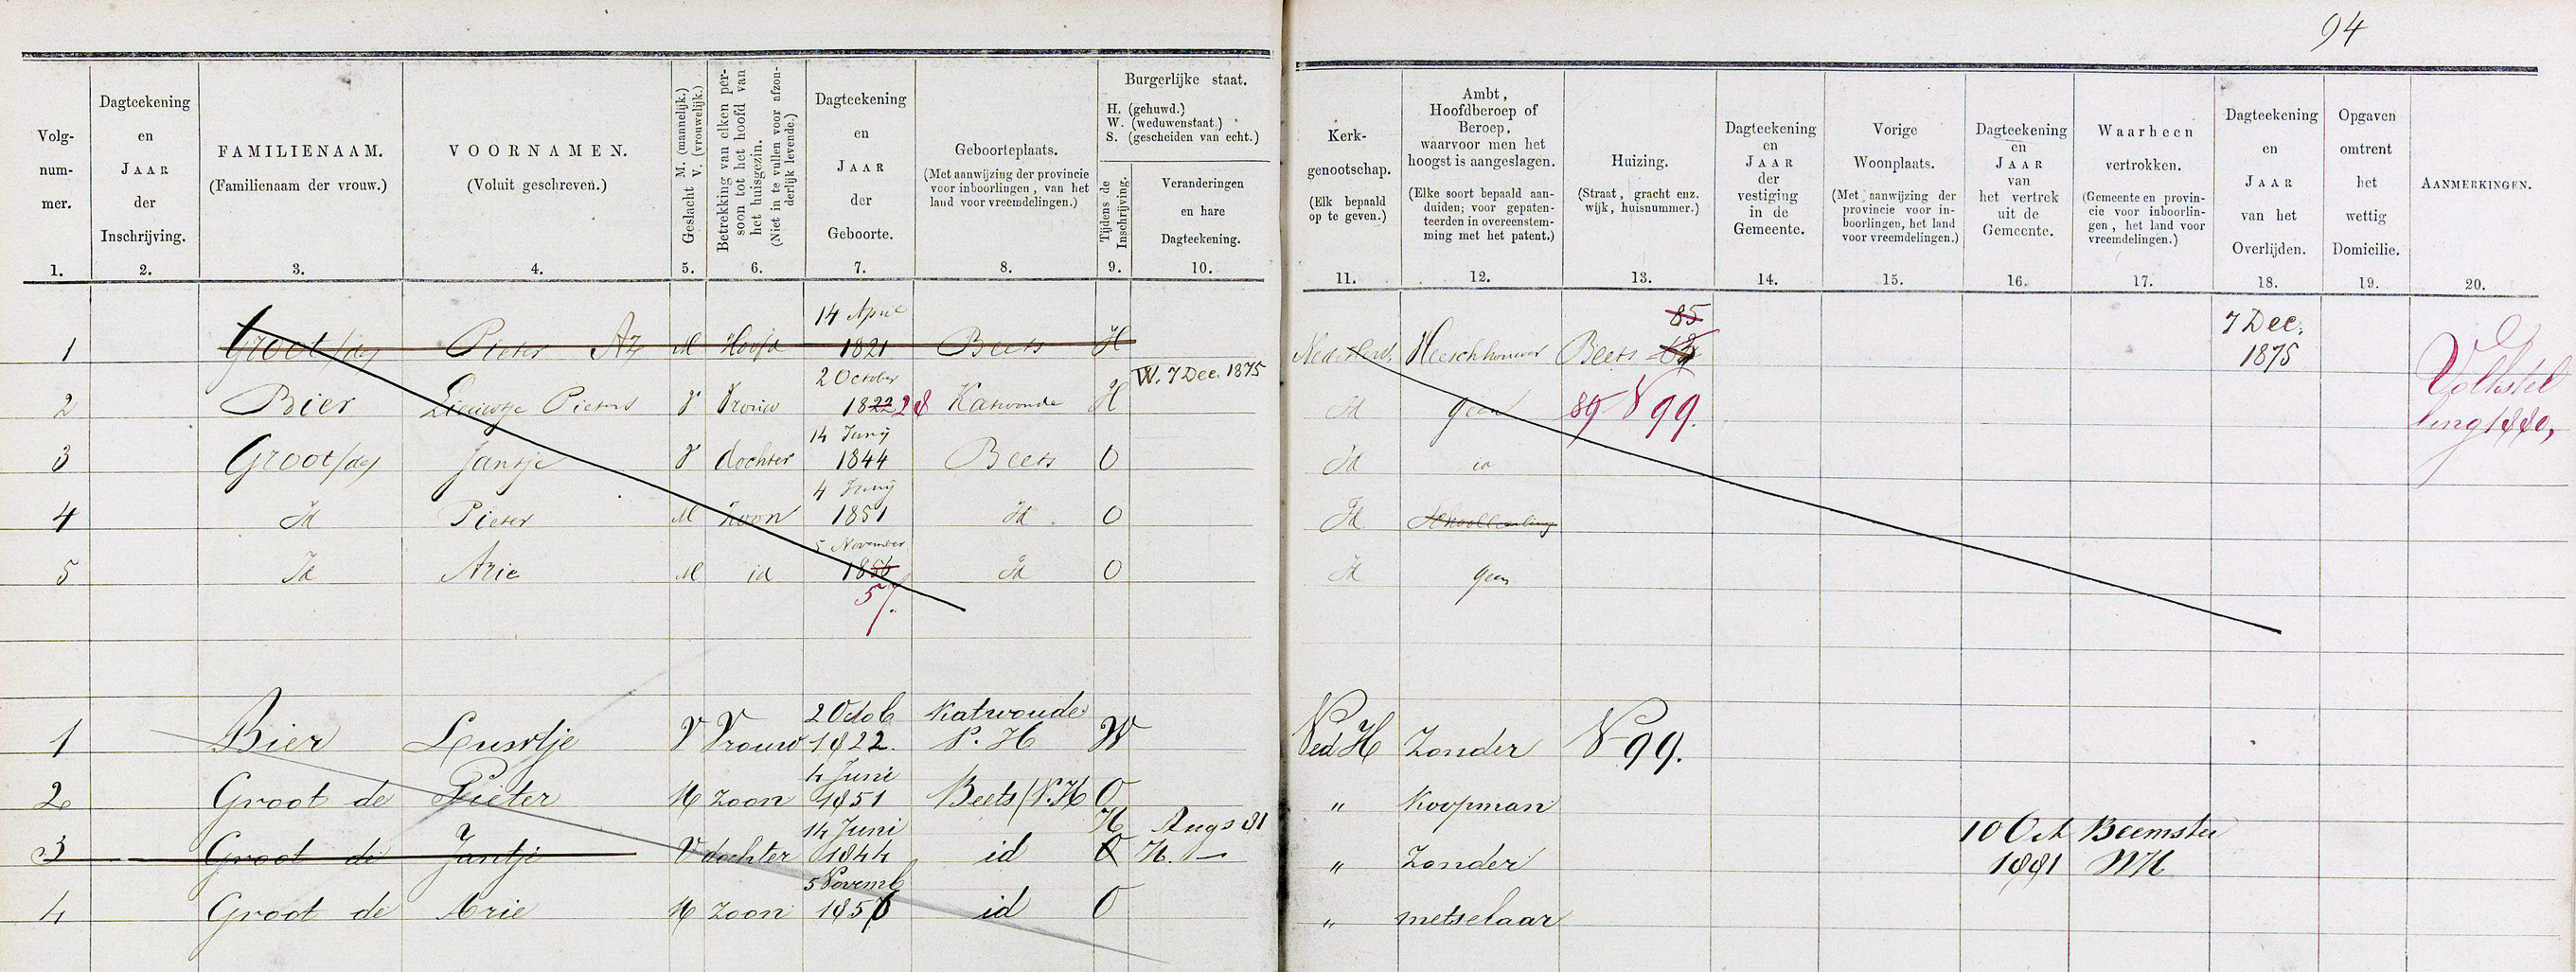 94
Volg-
num-
mer.
1.
Dagteekening
en
JAAR
der
Inschrijving.
2.
FAMILIENAAM.
(Familienaam der vrouw.)
3.
VOORNAMEN.
(Voluit geschreven.)
4.
Geslacht M. (mannelijk.)
V. (vrouwelijk.)
5.
Betrekking van elken per-
soon tot het hoofd van
het huisgezin.
(Niet in te vullen voor afzon-
derlijk levende.)
6.
Dagteekening
en
JAAR
der
Geboorte.
7.
Geboorteplaats.
(Met aanwijzing der provincie
voor inboorlingen, van het
land voor vreemdelingen.)
8.
Burgerlijke staat.
H. (gehuwd.)
W. (weduwenstaat.)
S. (gescheiden van echt.)
Tijdens de
Inschrijving.
9.
Veranderingen
en hare
Dagteekening.
10.
Kerk-
genootschap.
(Elk bepaald
op te geven.)
11.
Ambt,
Hoofdberoep of
Beroep,
waarvoor men het
hoogst is aangeslagen.
(Elke soort bepaald aan-
duiden; voor gepaten-
teerden in overeenstem-
ming met het patent.)
12.
Huizing.
(Straat, gracht enz.
wijk, huisnummer.)
13.
Dagteekening
en
JAAR
der
vestiging
in de
Gemeente.
14.
Vorige
Woonplaats.
(Met aanwijzing der
provincie voor in-
boorlingen, het land
voor vreemdelingen.)
15.
Dagteekening
en
JAAR
van
het vertrek
uit de
Gemeente.
16.
Waarheen
vertrokken.
(Gemeente en provin-
cie voor inboorlin-
gen, het land voor
vreemdelingen.)
17.
Dagteekening
en
JAAR
van het
Overlijden.
18.
Opgaven
omtrent
het
wettig
Domicilie.
19.
AANMERKINGEN.
20.
14 April 85 7 Dec.
1 Groot (de) Pieter Az M Hoofd 1821 Beets H Nederherv. Beets 1875
2 October W. 7 Dec. 1875
2 Bier Pieters V Vrouw 1822 28 Katwoude H Id geen 89 N 99.
Volkstel
ling 1880,
14 Junij
3 Groot (de) Jantje V dochter 1844 Beets O Id id
4 Junij
4 Id Pieter M Zoon 1851 Id O Id Schoolleerling
5 November
5 Id Arie M id 1856 Id O Id geen
57.
2 Octob Katwoude
1 Bier Leuwtje V Vrouw 1822. N. H W Ned H Zonder N 99.
4 Juni
2 Groot de Pieter M zoon 1851 Beets (N.H O " Koopman
14 Juni H Augs 81 10 Oct Beemster
3 Groot de Jantje V dochter 1844 id O H. — " Zonder 1881 NH
5 Novemb
4 Groot de Arie M zoon 1856 id O " metselaar